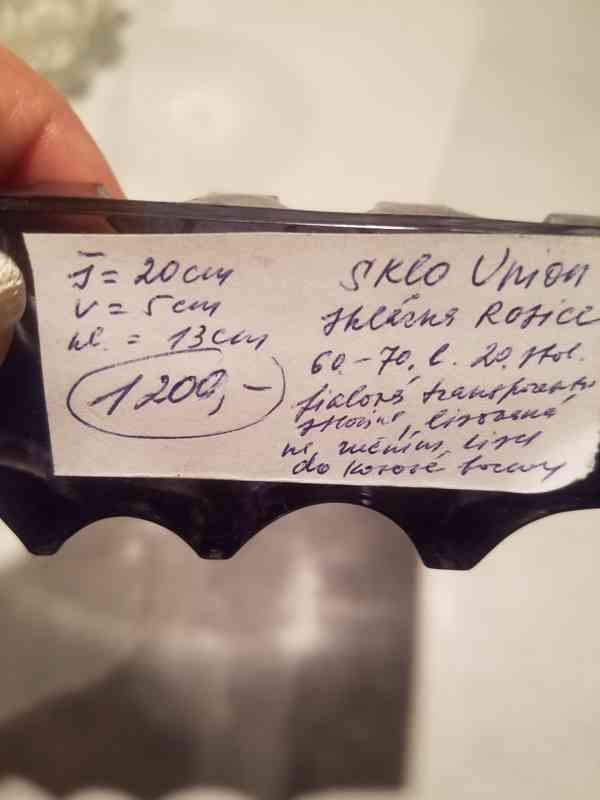 Š = 20 cm
v = 5 cm
hl. = 13 cm
1200,-
SKLO UNION
sklárna ROSICE
60.-70. l. 20. stol.
fialová transparentní
sklovina, lisovaná
na ručním lisu
do kovové formy